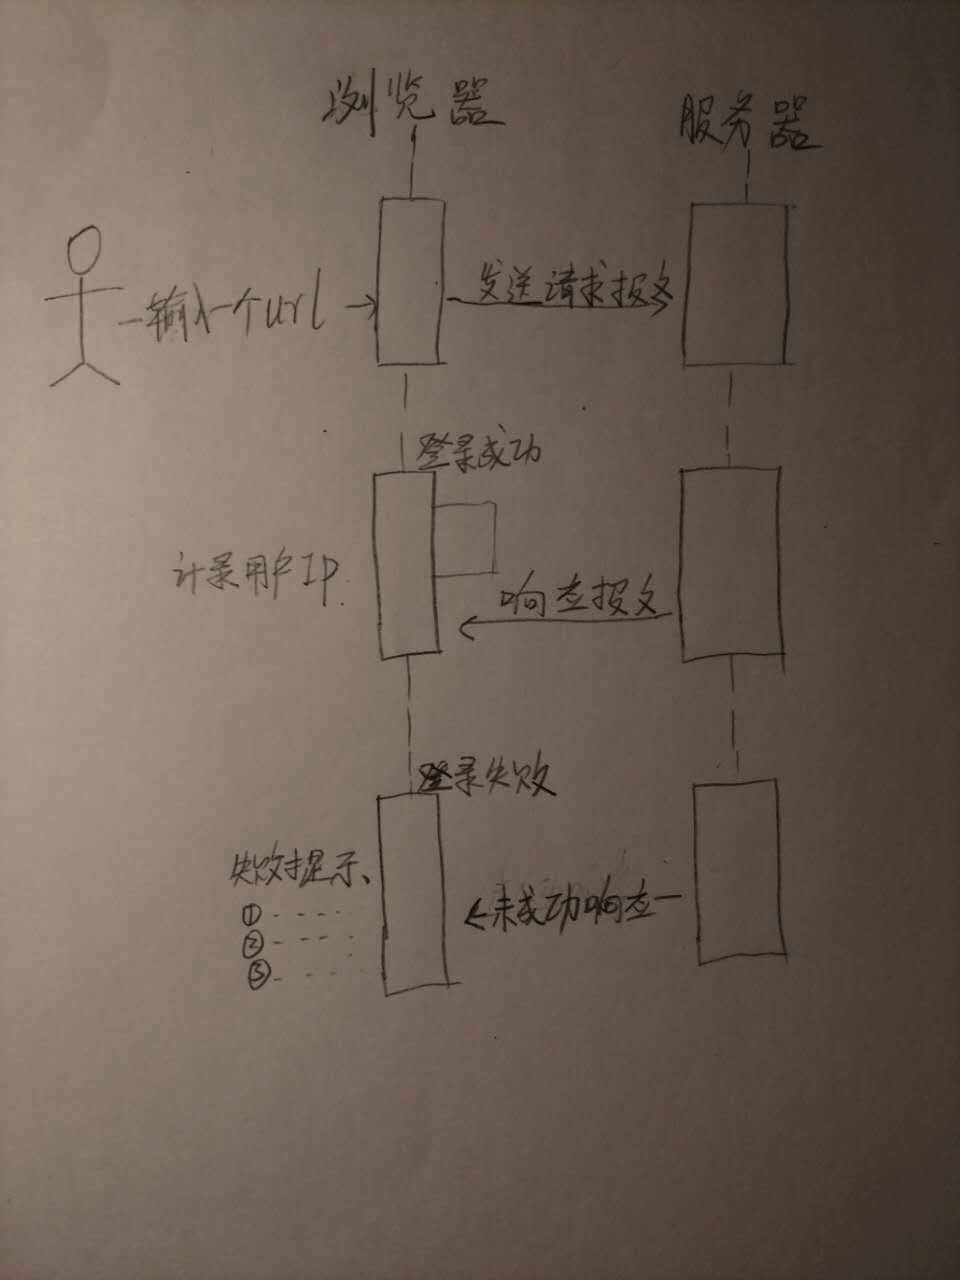 浏览器
服务器
输入一个url
发送请求报文
登录成功
计录用户IP.
响应报文
登录失败
失败提示、
①
②
③
未成功响应